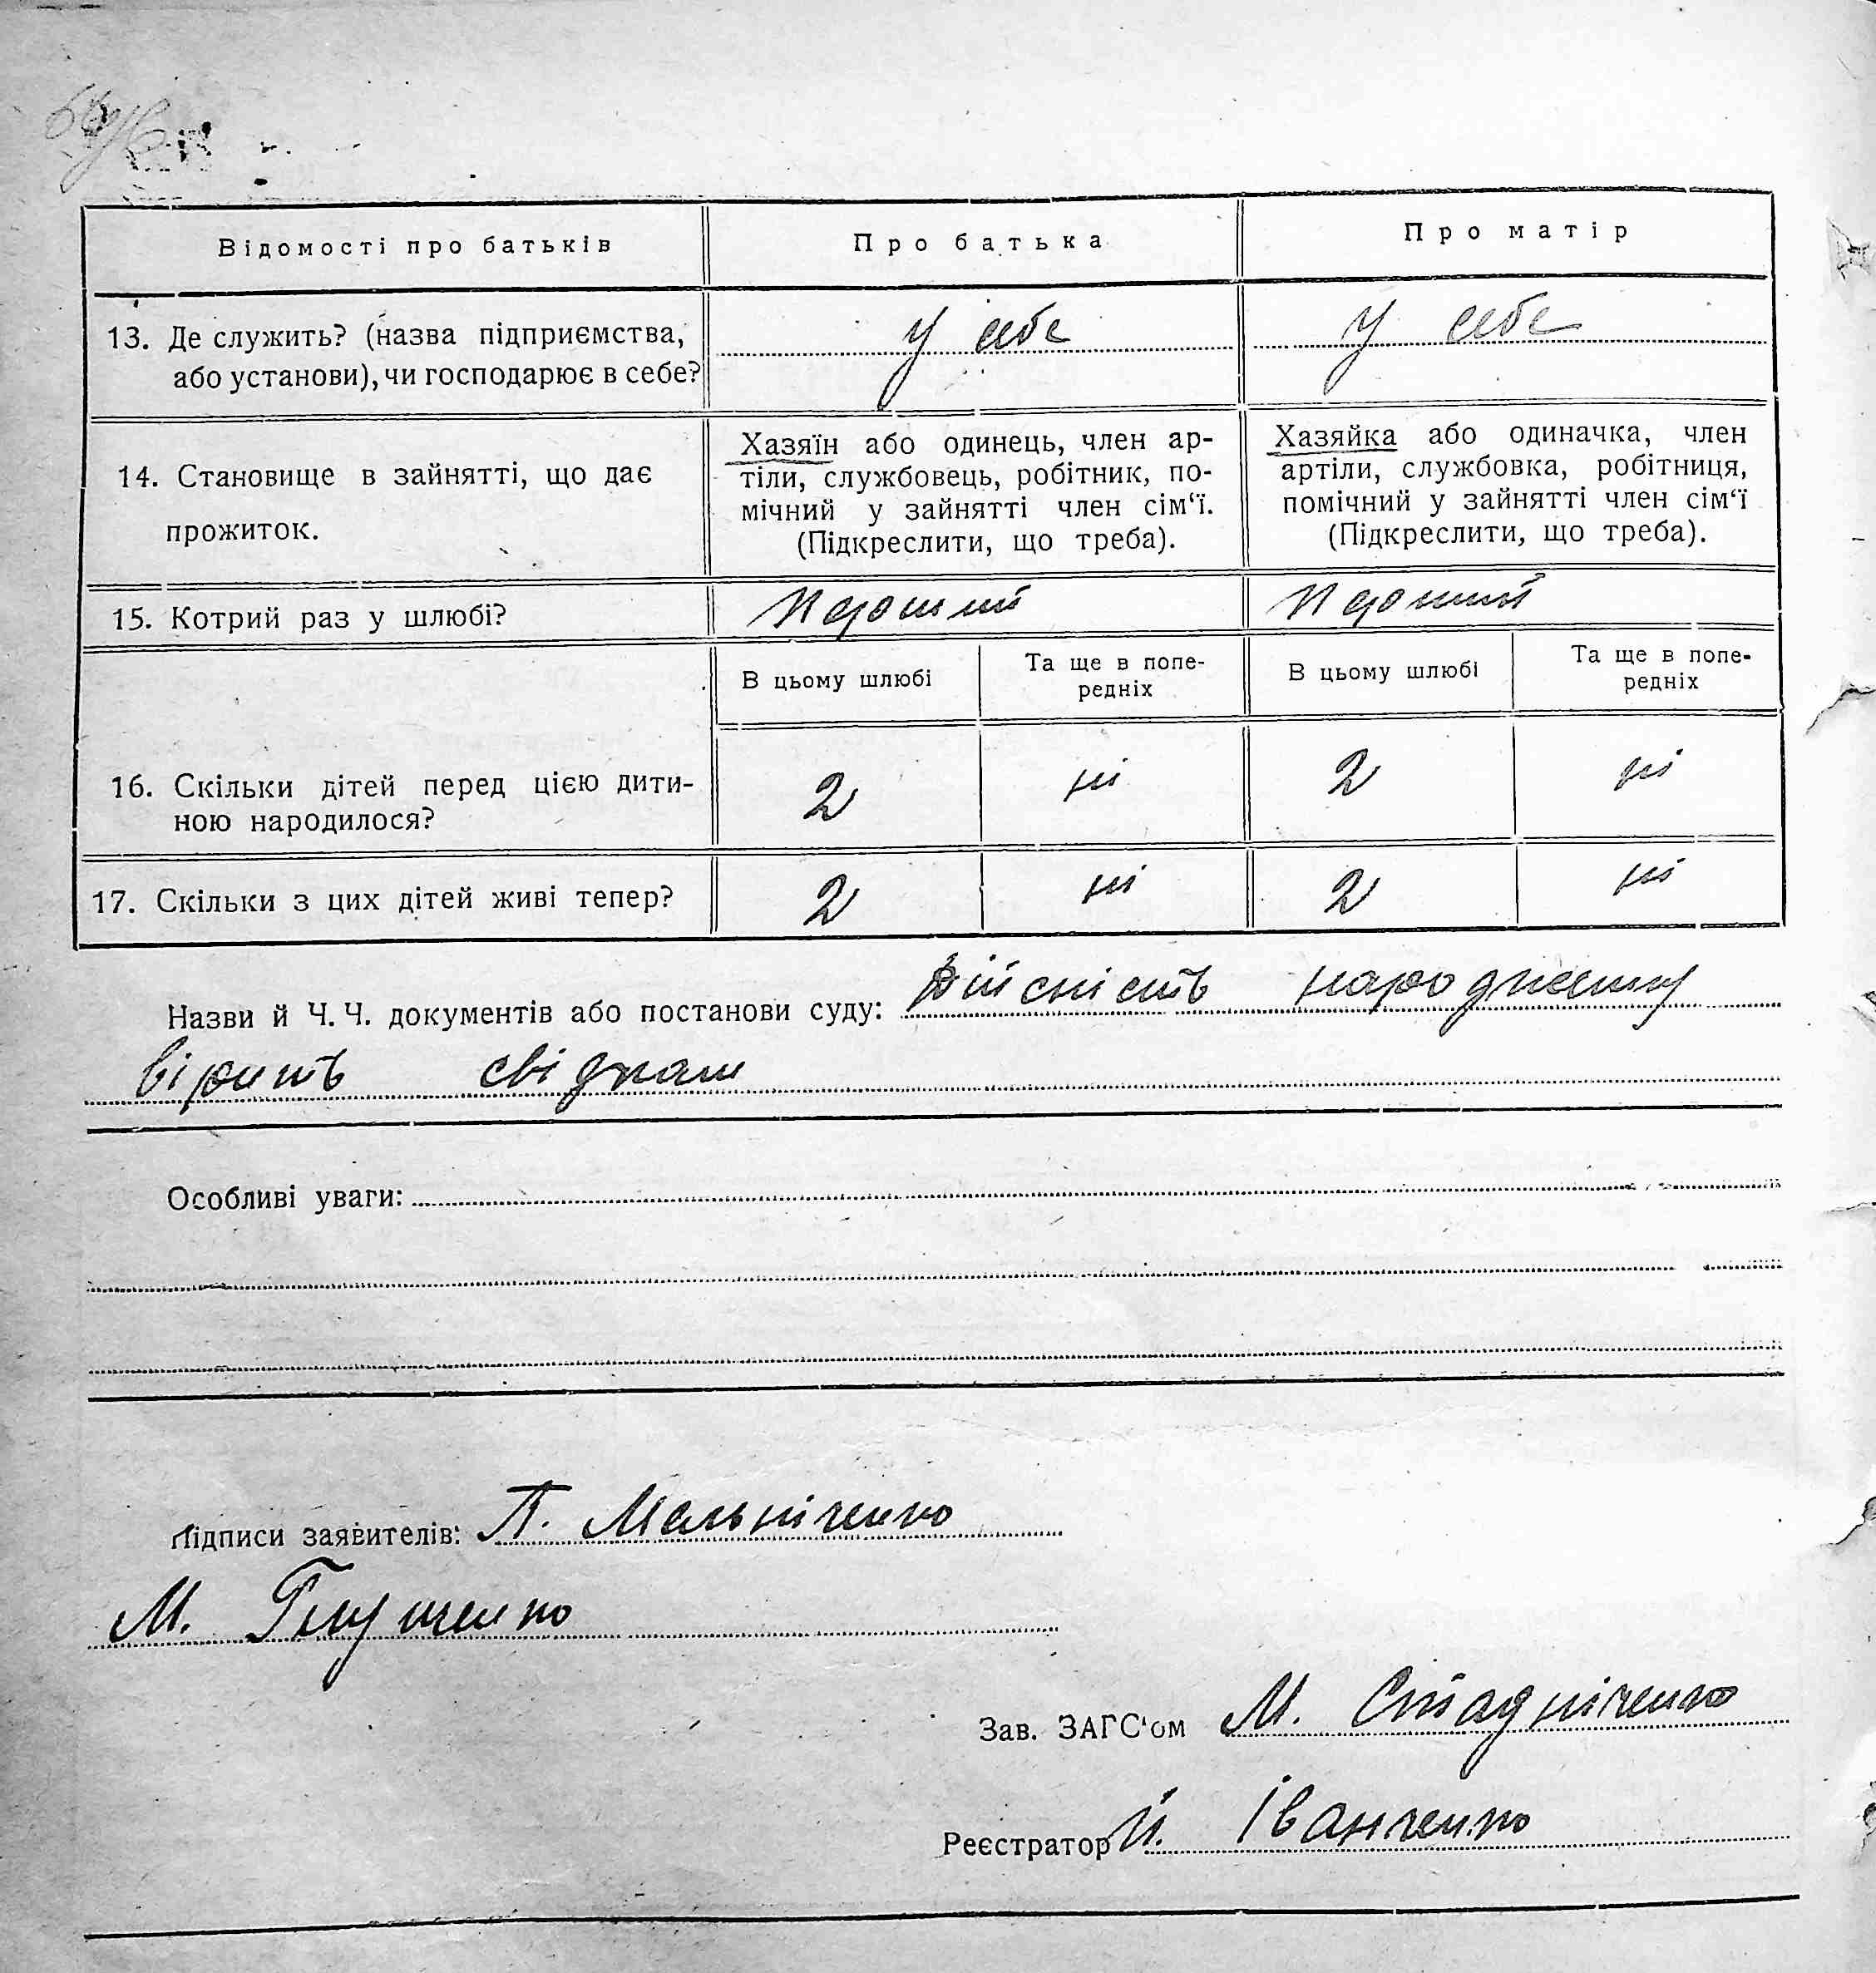 Відомості про батьків Про батька Про матір
13. Де служить? (назва підприємства, у себе у себе
або установи), чи господарює в себе?
14. Становище в зайнятті, що дає
прожиток.
Хазяїн або одинець, член ар-
тіли, службовець, робітник, по-
мічний у зайнятті член сім‘ї.
(Підкреслити, що треба).
Хазяйка або одиначка, член
артіли, службовка, робітниця,
помічний у зайнятті член сім‘ї
(Підкреслити, що треба).
15. Котрий раз у шлюбі? перший перший
В цьому шлюбі
Та ще в попе-
редніх
В цьому шлюбі
Та ще в попе-
редніх
16. Скільки дітей перед цією дити-
ною народилося?
2 ні 2 ні
17. Скільки з цих дітей живі тепер? 2 ні 2 ні
Назви й Ч. Ч. документів або постанови суду: дійсність
свідками
Особливі уваги:
Підписи заявителів: П. Мельніченко
М. Глущенко
Зав. ЗАГС‘ом М. Стадніченко
Реєстратор Й. Іванченко